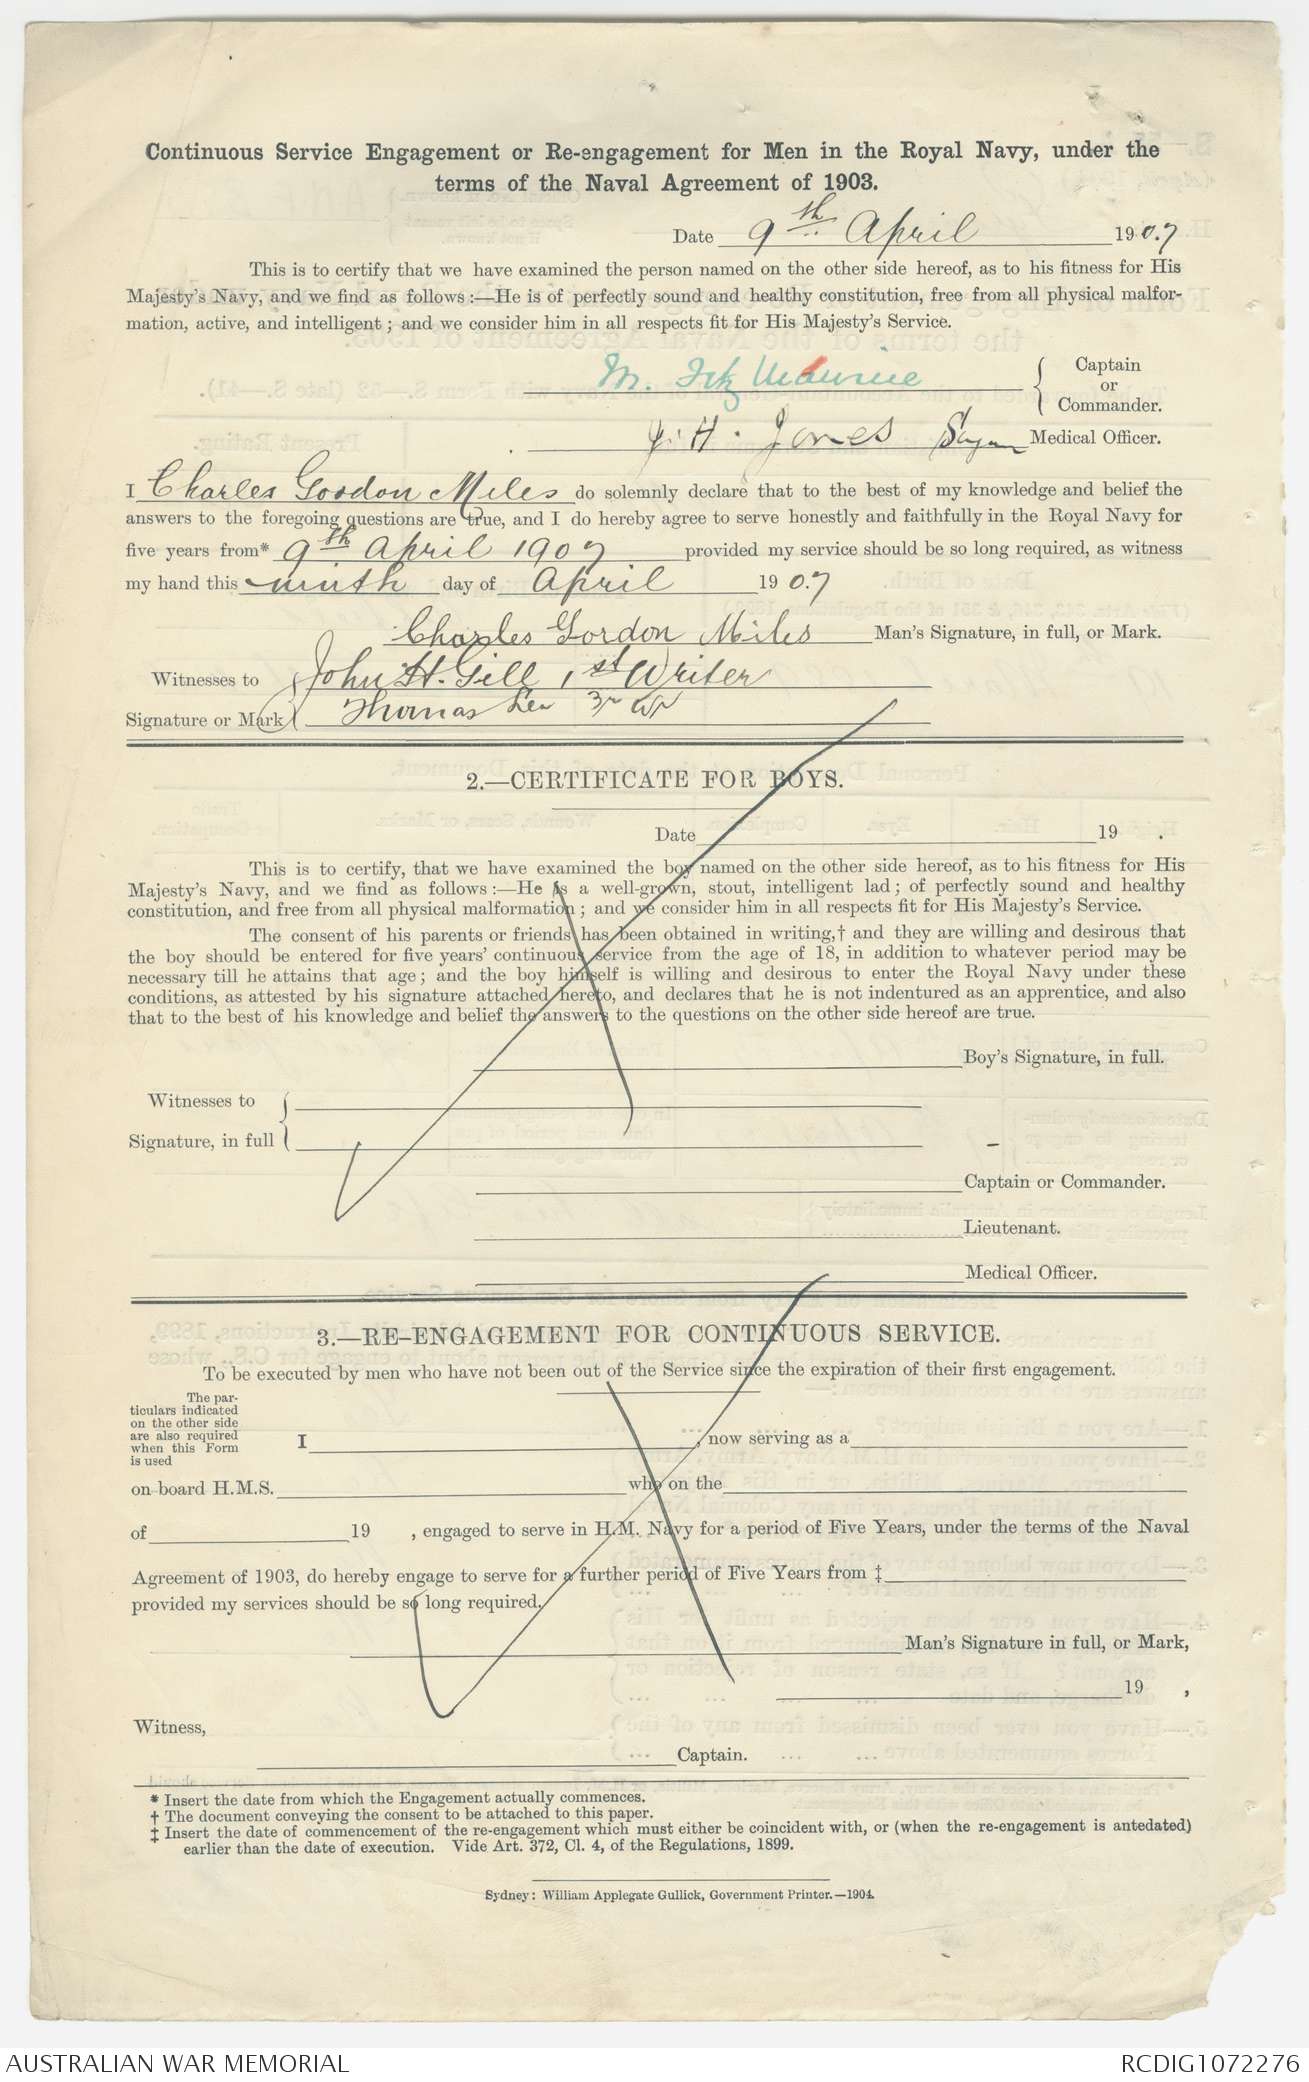 Continuous Service Engagement or Re-engagement for Men in the Royal Navy, under the
terms of the Naval Agreement of 1903.
Date 9th April 1907
This is to certify that we have examined the person named on the other side hereof, as to his fitness for His
Majesty's Navy, and we find as follows :—He is of perfectly sound and healthy constitution, free from all physical malfor-
mation, active, and intelligent ; and we consider him in all respects fit for His Majesty's Service.
M. FitzMaurice Captain
or
Commander.
J. H. Jones Medical Officer.
I Charles Gordon Miles do solemnly declare that to the best of my knowledge and belief the
answers to the foregoing questions are true, and I do hereby agree to serve honestly and faithfully in the Royal Navy for
five years from* 9th April 1907 provided my service should be so long required, as witness
my hand this ninth day of April 1907
Charles Gordon Miles Man's Signature, in full, or Mark.
Witnesses to John H. Gill 1st Writer
Signature or Mark Thomas
2.—CERTIFICATE FOR BOYS.
Date 19 .
This is to certify, that we have examined the boy named on the other side hereof, as to his fitness for His
Majesty's Navy, and we find as follows :—He is a well-grown, stout, intelligent lad ; of perfectly sound and healthy
constitution, and free from all physical malformation ; and we consider him in all respects fit for His Majesty's Service.
The consent of his parents or friends has been obtained in writing,† and they are willing and desirous that
the boy should be entered for five years' continuous service from the age of 18, in addition to whatever period may be
necessary till he attains that age ; and the boy himself is willing and desirous to enter the Royal Navy under these
conditions, as attested by his signature attached hereto, and declares that he is not indentured as an apprentice, and also
that to the best of his knowledge and belief the answers to the questions on the other side hereof are true.
Boy's Signature, in full.
Witnesses to
Signature, in full
Captain or Commander.
Lieutenant.
Medical Officer.
3.—RE-ENGAGEMENT FOR CONTINUOUS SERVICE.
To be executed by men who have not been out of the Service since the expiration of their first engagement.
The par-
ticulars indicated
on the other side
are also required
when this Form
is used
I , now serving as a
on board H.M.S. who on the
of 19 , engaged to serve in H.M. Navy for a period of Five Years, under the terms of the Naval
Agreement of 1903, do hereby engage to serve for a further period of Five Years from ‡
provided my services should be so long required.
Man's Signature in full, or Mark,
19 ,
Witness,
Captain.
* Insert the date from which the Engagement actually commences.
† The document conveying the consent to be attached to this paper.
‡ Insert the date of commencement of the re-engagement which must either be coincident with, or (when the re-engagement is antedated)
earlier than the date of execution. Vide Art. 372, Cl. 4, of the Regulations, 1899.
Sydney: William Applegate Gullick, Government Printer.—1904.
AUSTRALIAN WAR MEMORIAL RCDIG1072276